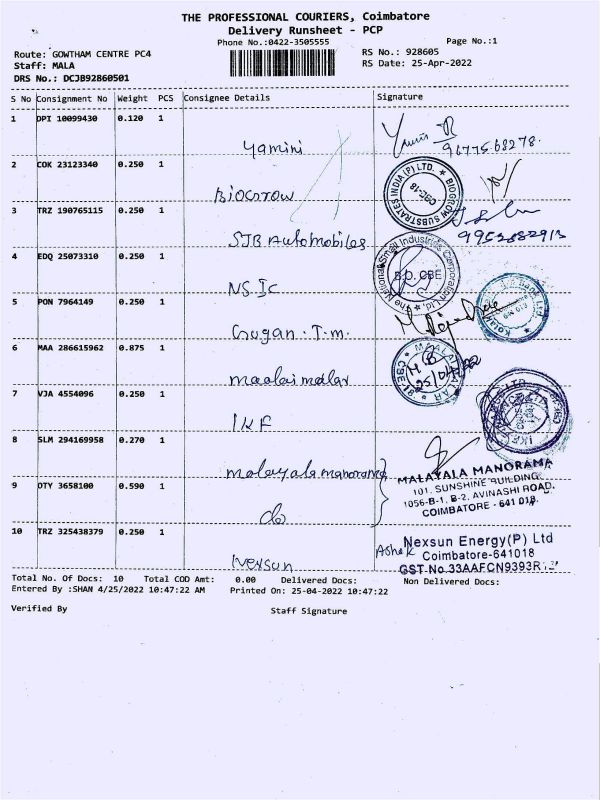 THE PROFESSIONAL COURIERS, Coimbatore
Delivery Runsheet - PCP
Phone No.:0422-3505555
Page No.:1
Route: GOWTHAM CENTRE PC4
RS No.: 928605
Staff: MALA
RS Date: 25-Apr-2022
DRS No.: DCJB92860501
S No Consignment No Weight PCS Consignee Details Signature
1 DPI 10099430 0.120 1
Yamini
9677568278.
2 COK 23123340 0.250 1
BIOGROW SUBSTRATES INDIA (P) LTD.
CBE-18
3 TRZ 190765115 0.250 1
SJB Automobiles
9952882913
4 EDQ 25073310 0.250 1
The National Small Industries Corporation Ltd.
B.O. CBE
NSIC
5 PON 7964149 0.250 1
Gugan . T.m.
6 MAA 286615962 0.875 1
MAALAI MALAR
25/04/22
maalai malar
7 VJA 4554096 0.250 1
IKF
8 SLM 294169958 0.270 1
malayala manorama
MALAYALA MANORAMA
101, SUNSHINE BUILDING,
1056-B-1, B-2, AVINASHI ROAD,
COIMBATORE - 641 018.
9 OTY 3658100 0.590 1
do
10 TRZ 325438379 0.250 1
Nexsun
Ashok
Nexsun Energy(P) Ltd
Coimbatore-641018
GST No.33AAFCN9393R
Total No. Of Docs: 10 Total COD Amt: 0.00 Delivered Docs: Non Delivered Docs:
Entered By :SHAN 4/25/2022 10:47:22 AM Printed On: 25-04-2022 10:47:22
Verified By Staff Signature